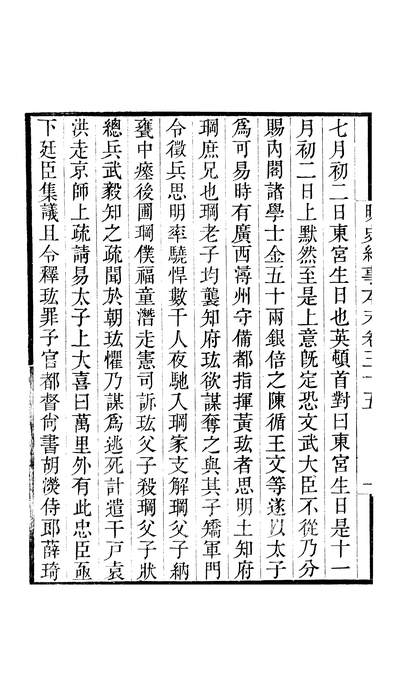 七月初二日東宮生日也英頓首對曰東宮生日是十一
月初二日上默然至是上意旣定恐文武大臣不從乃分
賜內閣諸學士金五十兩銀倍之陳循王文等遂以太子
爲可易時有廣西潯州守備都指揮黃玹者思明土知府
㻞庶兄也㻞老子均襲知府玹欲謀奪之與其子矯軍門
令徵兵思明率驍悍數千人夜馳入㻞家支解㻞父子納
甕中瘞後圃㻞僕福童潛走憲司訴玹父子殺㻞父子狀
總兵武毅知之疏聞於朝玹懼乃謀爲逃死計遣千戸袁
洪走京師上疏請易太子上大喜曰萬里外有此忠臣亟
下廷臣集議且令釋玹罪予官都督尙書胡濙侍郎薛琦
明史紀事本末卷三十五
一